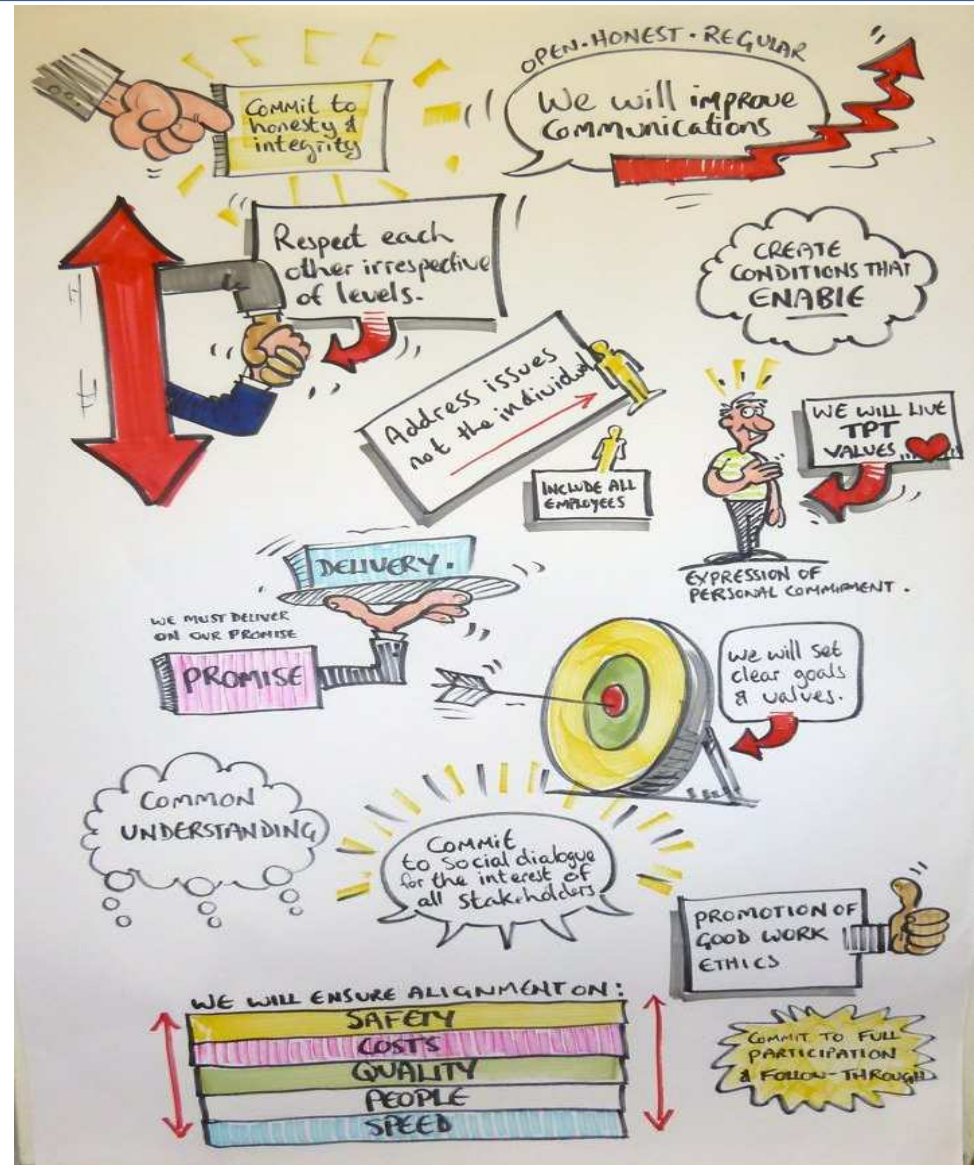 COMMIT TO
honesty &
integrity
OPEN · HONEST · REGULAR
We will improve
Communications
Respect each
other irrespective
of levels.
CREATE
CONDITIONS THAT
ENABLE
Address issues
not the individual
INCLUDE ALL
EMPLOYEES
WE WILL LIVE
TPT
VALUES
EXPRESSION OF
PERSONAL COMMITMENT.
DELIVERY.
WE MUST DELIVER
ON OUR PROMISE
PROMISE
we will set
clear goals
& values.
COMMON
UNDERSTANDING
COMMIT
to Social dialogue
for the interest of
all stakeholders
PROMOTION OF
GOOD WORK
ETHICS
WE WILL ENSURE ALIGNMENT ON:
SAFETY
COSTS
QUALITY
PEOPLE
SPEED
COMMIT TO FULL
PARTICIPATION
& FOLLOW-THROUGH